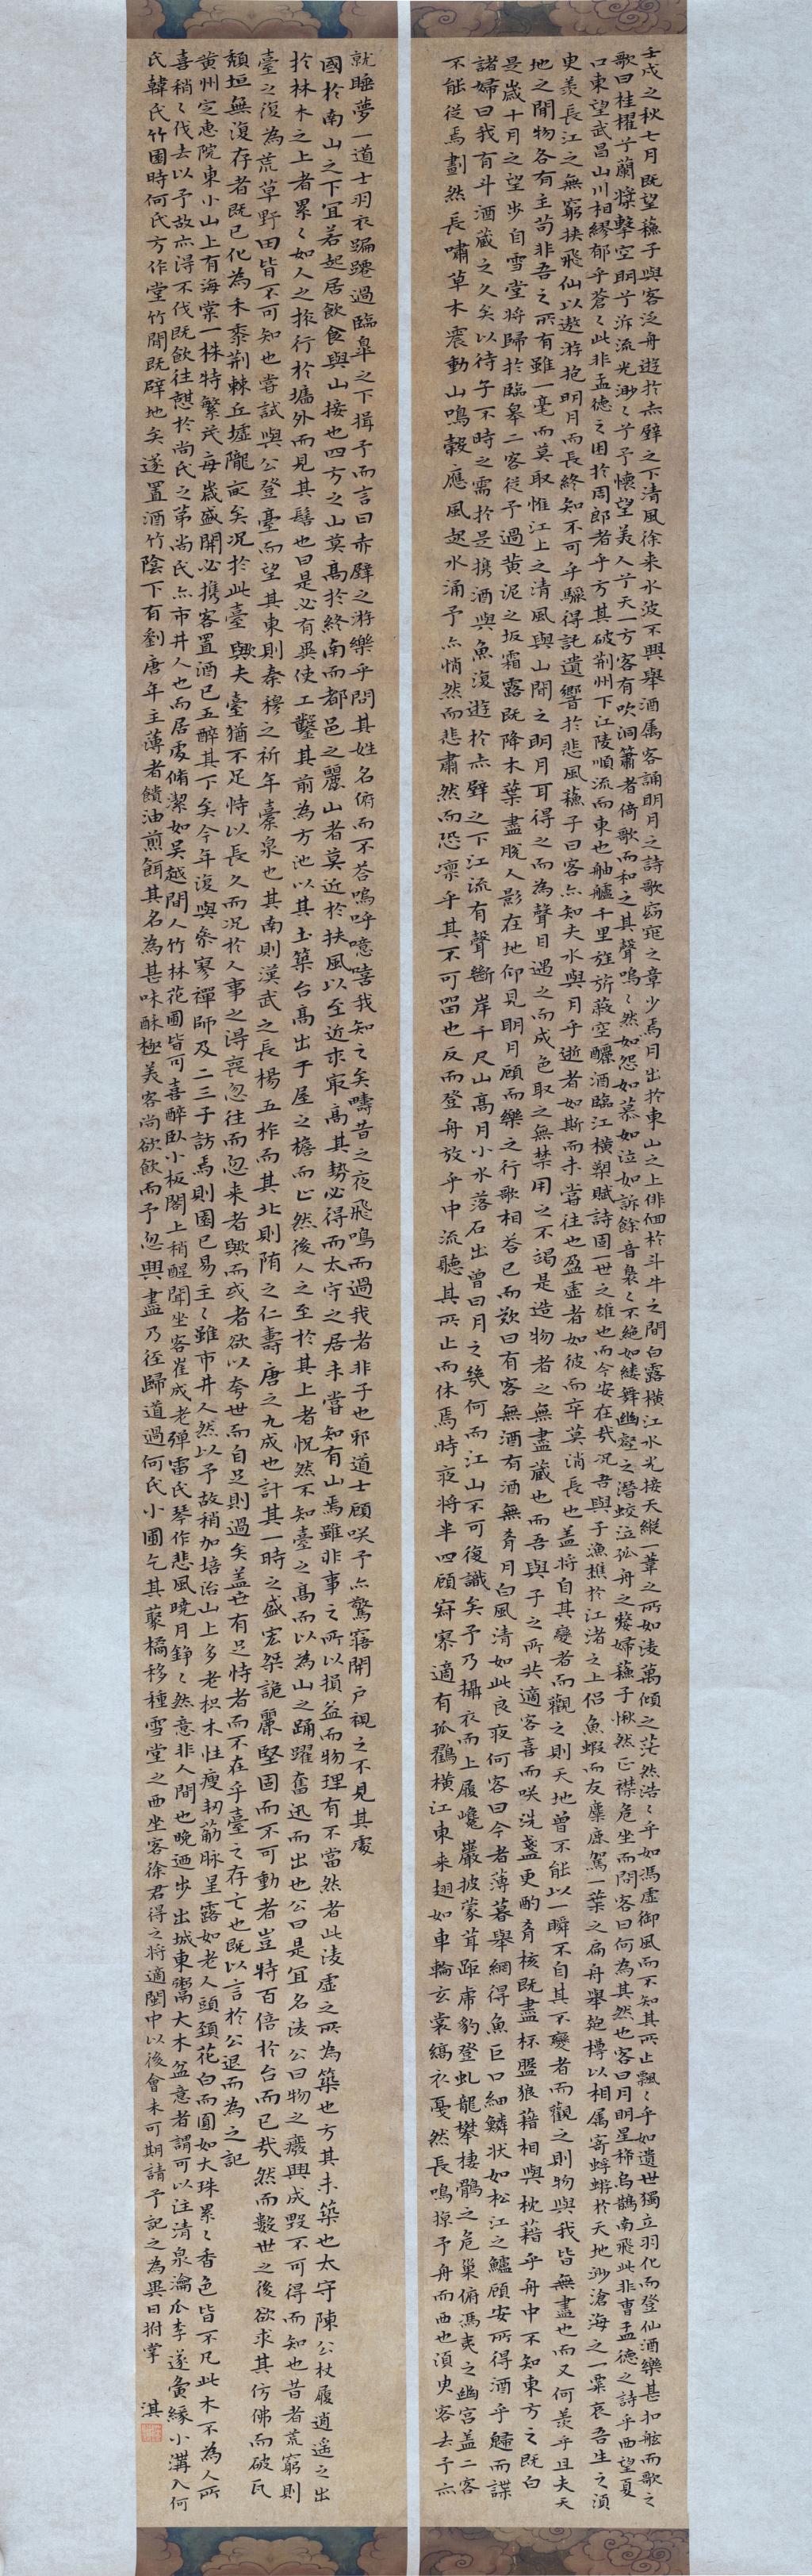 壬戌之秋七月既望蘇子與客泛舟遊於赤壁之下清風徐来水波不興舉酒属客誦明月之詩歌窈窕之章少焉月出於東山之上徘徊於斗牛之間白露横江水光接天縱一葦之所如淩萬傾之茫然浩〻乎如馮虛御風而不知其所止飄〻乎如遺世獨立羽化而登仙酒樂甚扣舷而歌之
歌曰桂櫂兮蘭槳擊空明兮泝流光渺〻兮予懷望美人兮天一方客有吹洞簫者倚歌而和之其聲嗚〻然如怨如慕如泣如訴餘音裊〻不絶如縷舞幽壑之潛蛟泣孤舟之嫠婦蘇子愀然正襟危坐而問客曰何為其然也客曰月明星稀烏鵲南飛此非曹孟德之詩乎西望夏
口東望武昌山川相繆郁乎蒼〻此非孟德之困於周郎者乎方其破荆州下江陵順流而東也舳艫千里旌旂蔽空釃酒臨江横槊賦詩固一世之雄也而今安在哉况吾與子漁樵於江渚之上侣魚蝦而友麋鹿駕一葉之扁舟舉匏樽以相属寄蜉蝣於天地渺滄海之一粟哀吾生之湏
臾羨長江之無窮挾飛仙以遨游抱明月而長終知不可乎驟得託遺響於悲風蘇子曰客亦知夫水與月乎逝者如斯而未嘗往也盈虛者如彼而卒莫消長也盖將自其變者而觀之則天地曾不能以一瞬不自其不變者而觀之則物與我皆無盡也而又何羨乎且夫天
地之間物各有主苟非吾之所有雖一毫而莫取惟江上之清風與山間之明月耳得之而為聲目遇之而成色取之無禁用之不竭是造物者之無盡藏也而吾與子之所共適客喜而咲洗盞更酌肴核既盡杯盤狼藉相與枕藉乎舟中不知東方之既白
是歲十月之望步自雪堂將歸於臨皋二客從予過黃泥之坂霜露既降木葉盡脫人影在地仰見明月顧而樂之行歌相荅已而歎曰有客無酒有酒無肴月白風清如此良夜何客曰今者薄暮舉網得魚巨口細鱗狀如松江之鱸顧安所得酒乎歸而謀
諸婦曰我有斗酒蔵之久矣以待子不時之需於是携酒與魚復遊於赤壁之下江流有聲斷岸千尺山高月小水落石出曾日月之幾何而江山不可復識矣予乃攝衣而上履巉巖披蒙茸踞虎豹登虬龍攀棲鶻之危巢俯馮夷之幽宮盖二客
不能從焉劃然長嘯草木震動山鳴穀應風起水涌予亦悄然而悲肅然而恐凛乎其不可留也反而登舟放乎中流聽其所止而休焉時夜将半四顧寂寥適有孤鶴横江東来翅如車輪玄裳縞衣戛然長鳴掠予舟而西也湏臾客去予亦
就睡夢一道士羽衣蹁躚過臨皋之下揖予而言曰赤壁之游樂乎問其姓名俯而不荅嗚呼噫嘻我知之矣疇昔之夜飛鳴而過我者非子也邪道士顧咲予亦驚寤開户視之不見其處
國於南山之下宜若起居飲食與山接也四方之山莫高於終南而都邑之麗山者莫近於扶風以至近求最高其势必得而太守之居未嘗知有山焉雖非事之所以損益而物理有不當然者此淩虛之所為築也方其未築也太守陳公杖履逍遙之出
於林木之上者累〻如人之旅行於墻外而見其髻也曰是必有異使工鑿其前為方池以其土築台高出于屋之檐而止然後人之至於其上者恍然不知臺之高而以為山之踊躍奮迅而出也公曰是宜名淩公曰物之廢興成毀不可得而知也昔者荒窮則
臺之復為荒草野田皆不可知也嘗試與公登臺而望其東則秦穆之祈年橐泉也其南則漢武之長楊五柞而其北則隋之仁壽唐之九成也計其一時之盛宏桀詭麗堅固而不可動者豈特百倍於台而已哉然而數世之後欲求其仿佛而破瓦
頹垣無復存者既已化為禾黍荆棘丘墟隴亩矣况於此臺歟夫臺猶不足恃以長久而况於人事之得喪忽往而忽来者歟而或者欲以夸世而自足則過矣盖世有足恃者而不在乎臺之存亡也既以言於公退而為之記
黃州定惠院東小山上有海棠一株特繁茂每歲盛開必携客置酒已五醉其下矣今年復與參寥禪師及二三子訪焉則園已易主〻雖市井人然以予故稍加培治山上多老枳木性瘦韧筋脉呈露如老人頭頚花白而圓如大珠累〻香色皆不凡此木不為人所
喜稍〻伐去以予故亦得不伐既飲往憇於尚氏之第尚氏亦市井人也而居處脩潔如吴越間人竹林花圃皆可喜醉臥小板閣上稍醒聞坐客崔成老彈雷氏琴作悲風曉月錚〻然意非人間也晚迺步出城東鬻大木盆意者謂可以注清泉瀹瓜李遂夤緣小溝入何
氏韓氏竹園時何氏方作堂竹間既辟地矣遂置酒竹陰下有劉唐年主薄者饋油煎餌其名為甚味酥極美客尚欲飲而予忽興盡乃徑歸道過何氏小圃乞其藂橘移種雪堂之西坐客徐君得之將適閩中以後會未可期請予記之為異日拊掌 淇